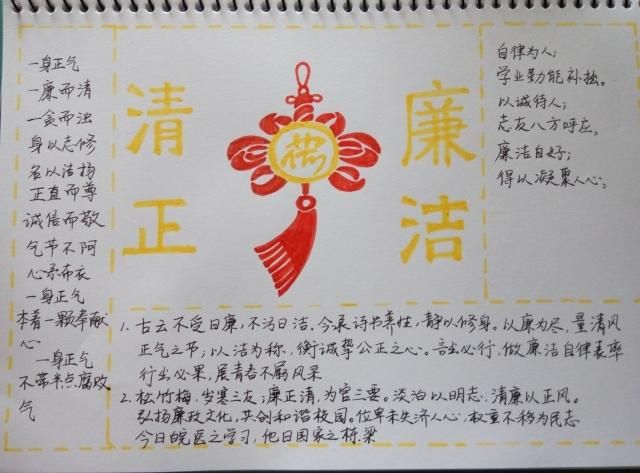 一身正气
一廉而清
一贪而浊
身以志修
名以洁扬
正直而尊
诚信而敬
气节不阿
心系布衣
一身正气
本着一颗奉献
心
一身正气
不带半点腐败
气
清 廉
正 洁
自律为人；
学业勤能补拙。
以诚待人；
志友八方呼应。
廉洁自好；
得以凝聚人心；
1. 古云不受曰廉，不污曰洁，今承诗书养性，静以修身。以廉为尽，量清风
正气之节；以洁为称，衡诚挚公正之心。言出必行，做廉洁自律表率
行出必果，展青春不腐风采
2. 松竹梅，岁寒三友；廉正清，为官三要。淡泊以明志，清廉以正风。
弘扬廉政文化，共创和谐校园。位卑未失济人心，权重不移为民志
今日皖医之学习，他日国家之栋梁